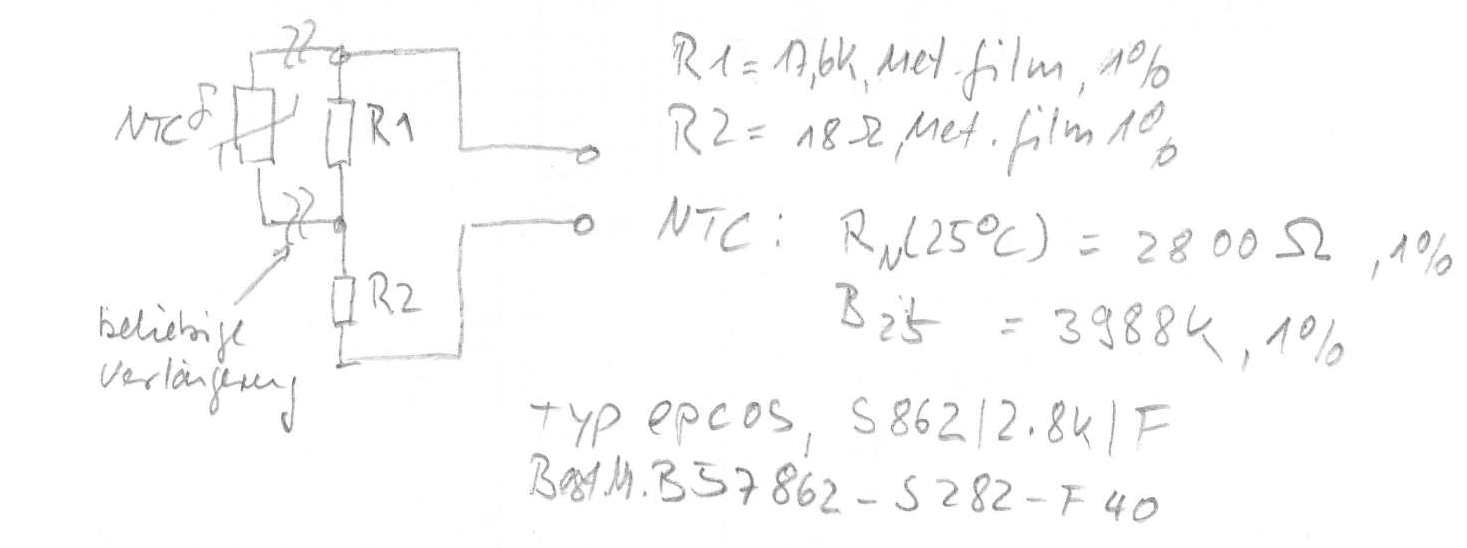 NTC
ϑ
R1
R2
beliebige
Verlängerung
R1 = 17,6k, Met.film, 1%
R2 = 18Ω, Met.film 1%
NTC: R_N(25°C) = 2800 Ω, 1%
B_25 = 3988K, 1%
Typ epcos, S862/2.8k/F
Best.N. B57862-S282-F40